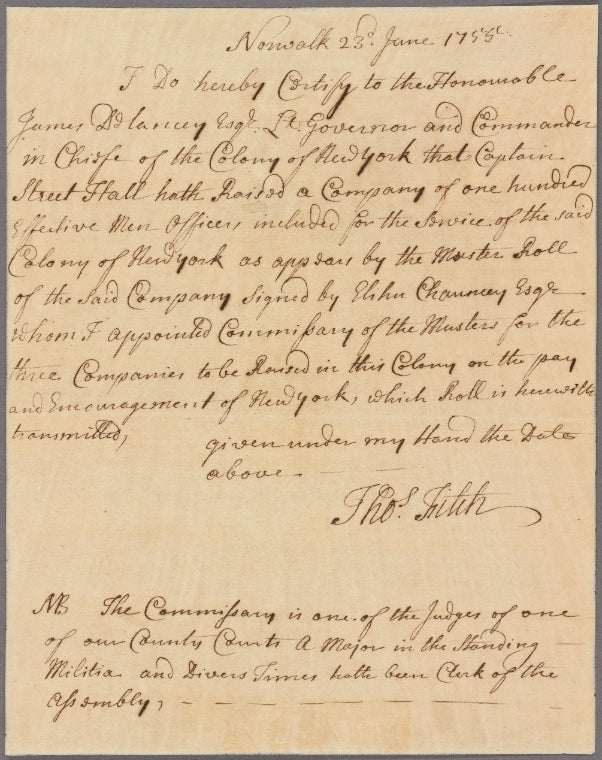 Norwalk 23d. June 1755
I Do hereby Certify to the Honourable
James Delancey Esqr. Lt. Governor and Commander
in Chiefe of the Colony of New York that Captain
Street Hall hath Raised a Company of one hundred
Effective Men Officers included for the Service of the said
Colony of New york as appears by the Muster Roll
of the said Company signed by Elihu Chauncey Esqr
whom I appointed Commissary of the Musters for the
three Companies to be Raised in this Colony on the pay
and Encouragement of New york, which Roll is herewith
transmitted,
given under my Hand the Date
above
Thos. Fitch
NB The Commissary is one of the Judges of one
of our County Courts A Major in the Standing
Militia and Divers Times hath been Clerk of the
Assembly,